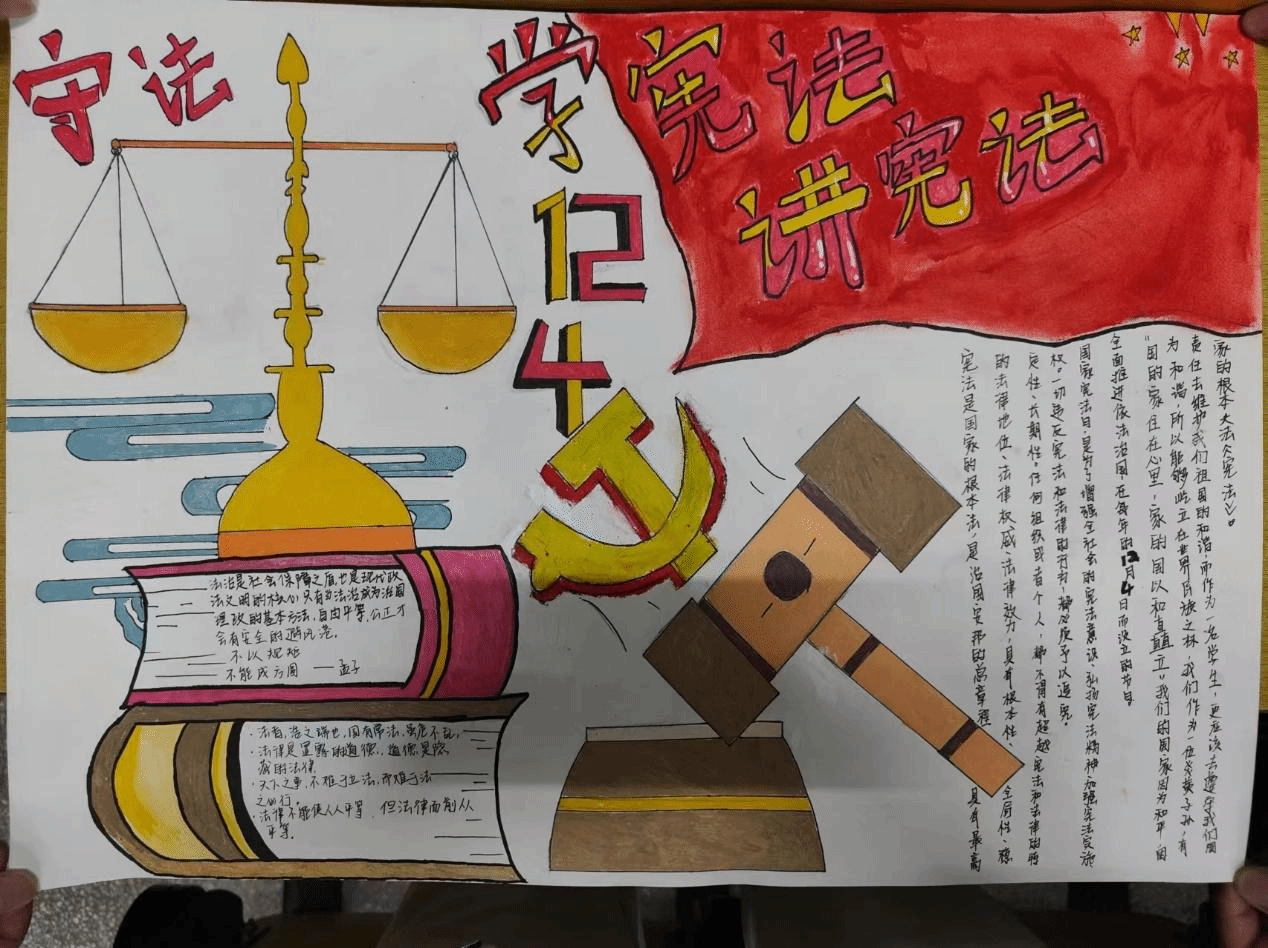 守法
学宪法
讲宪法
12
4
法治是社会保障之盾,也是现代政
法文明的核心,只有为法治成为治国
理政的基本方法,自由平等,公正才
会有安全的避风港。
不以规矩
不能成方圆 ——孟子
·法者,治之端也,国有常法,虽危不乱。
·法律是显露的道德,道德是隐
藏的法律
·天下之事,不难于立法,而难于法
之必行。
·法律不能使人人平等,但法律面前人人
平等。
宪法是国家的根本法,是治国安邦的总章程,具有最高
的法律地位、法律权威、法律效力,具有根本性、全局性、稳
定性、长期性。任何组织或者个人,都不得有超越宪法和法律的特
权。一切违反宪法和法律的行为,都必须予以追究。
国家宪法日,是为了增强全社会的宪法意识、弘扬宪法精神、加强宪法实施
全面推进依法治国在每年的12月4日而设立的节日
“国的家住在心里,家的国以和直矗立”我们的国家因为和平、因
为和谐,所以能够屹立在世界民族之林,我们作为一位炎黄子孙,有
责任去维护我们祖国的和谐而作为一名学生,更应该去遵守我们国
家的根本大法《宪法》。